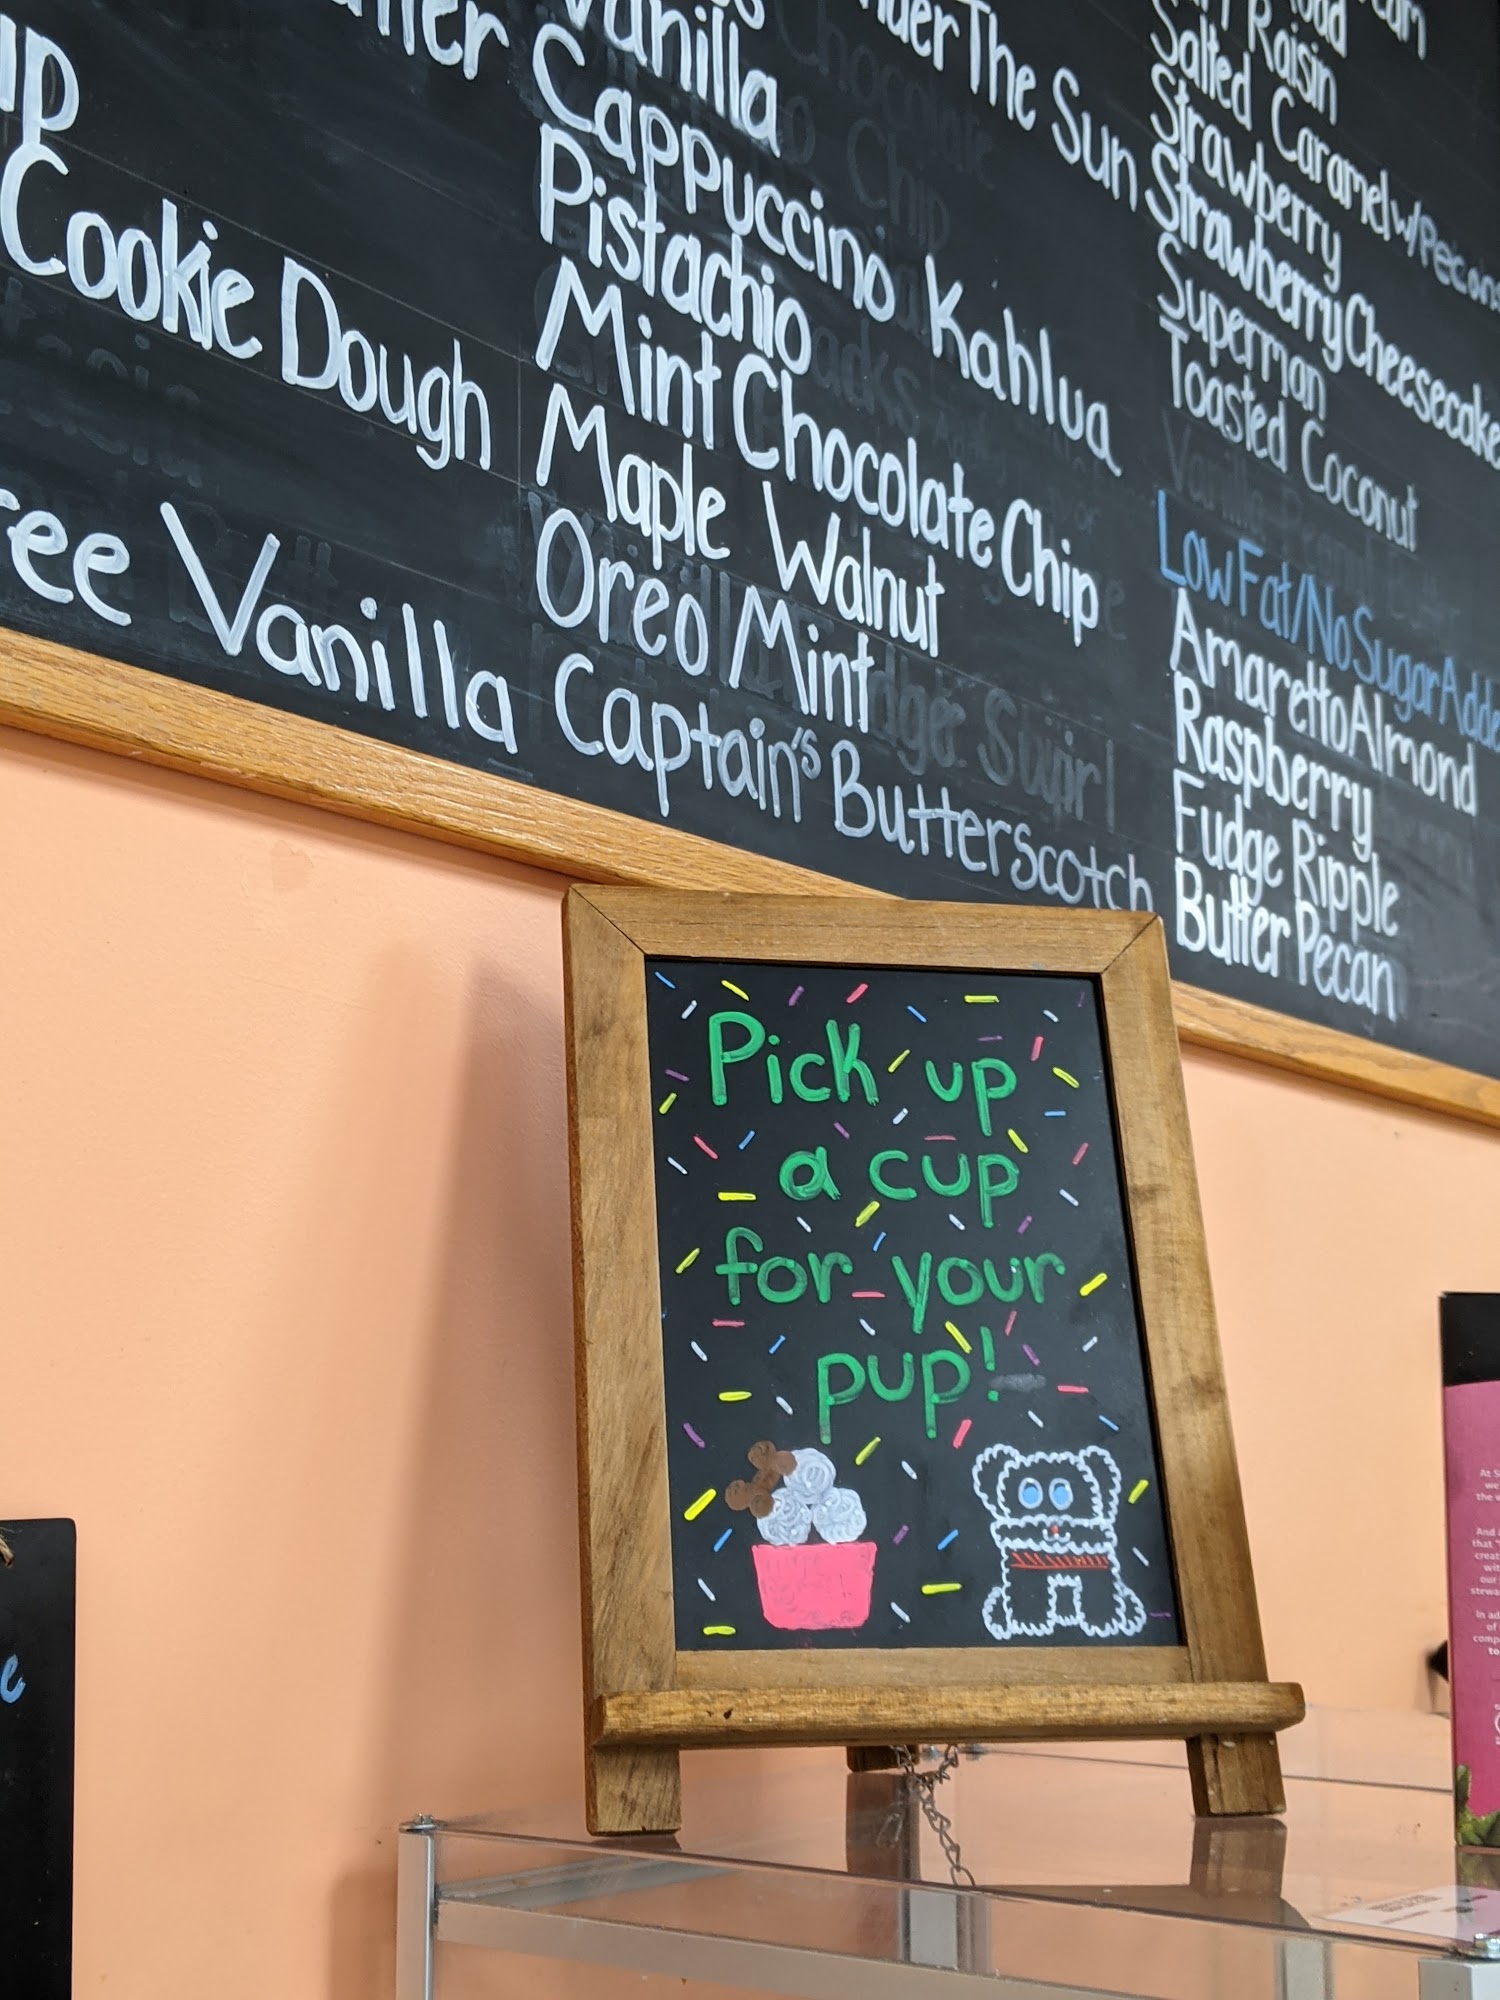 Cookie Dough
Vanilla
Vanilla
Cappuccino Kahlua
Pistachio
Mint Chocolate Chip
Maple Walnut
Oreo Mint
Captain's Butterscotch
The Sun
Raisin
Salted Caramel w/
Strawberry
Strawberry Cheesecake
Superman
Toasted Coconut
Low Fat/No Sugar
Amaretto Almond
Raspberry
Fudge Ripple
Butter Pecan
Pick up
a cup
for your
pup!